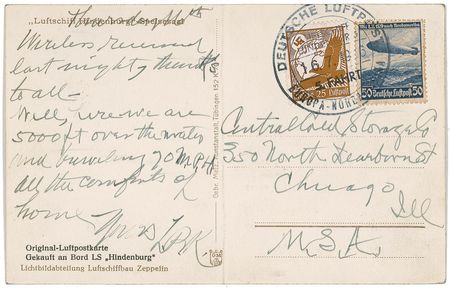 „Luftschiff Hindenburg" Speisesaal
Wireless received
last night, thanks
to all —
Well, here we are
5000 ft over the water
and traveling 70 M.P.H
all the comforts of
home
Original-Luftpostkarte
Gekauft an Bord LS „Hindenburg"
Lichtbildabteilung Luftschiffbau Zeppelin
Gebr. Metz, Kunstanstalt, Tübingen
DEUTSCHE LUFTPOST
EUROPA-NORDAMERIKA
25 Luftpost
50 Deutsche Luftpost 50
Central Cold Storage Co
350 North Dearborn St
Chicago
Ill
U.S.A.